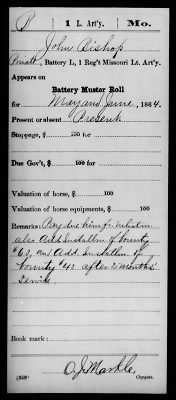 B | 1 L. Art'y. | Mo.
John Bishop
Private, Battery L, 1 Reg't Missouri Lt. Art'y.
Appears on
Battery Muster Roll
for May and June, 1864.
Present or absent Present
Stoppage, $ 100 for
Due Gov't, $ 100 for
Valuation of horse, $ 100
Valuation of horse equipments, $ 100
Remarks: Pay due him for enlistm
also Add. Installm of bounty
$60, and Add. Installm of
bounty $40 after 2 months'
service.
Book mark:
O. J. Markle
(358) Copyist.